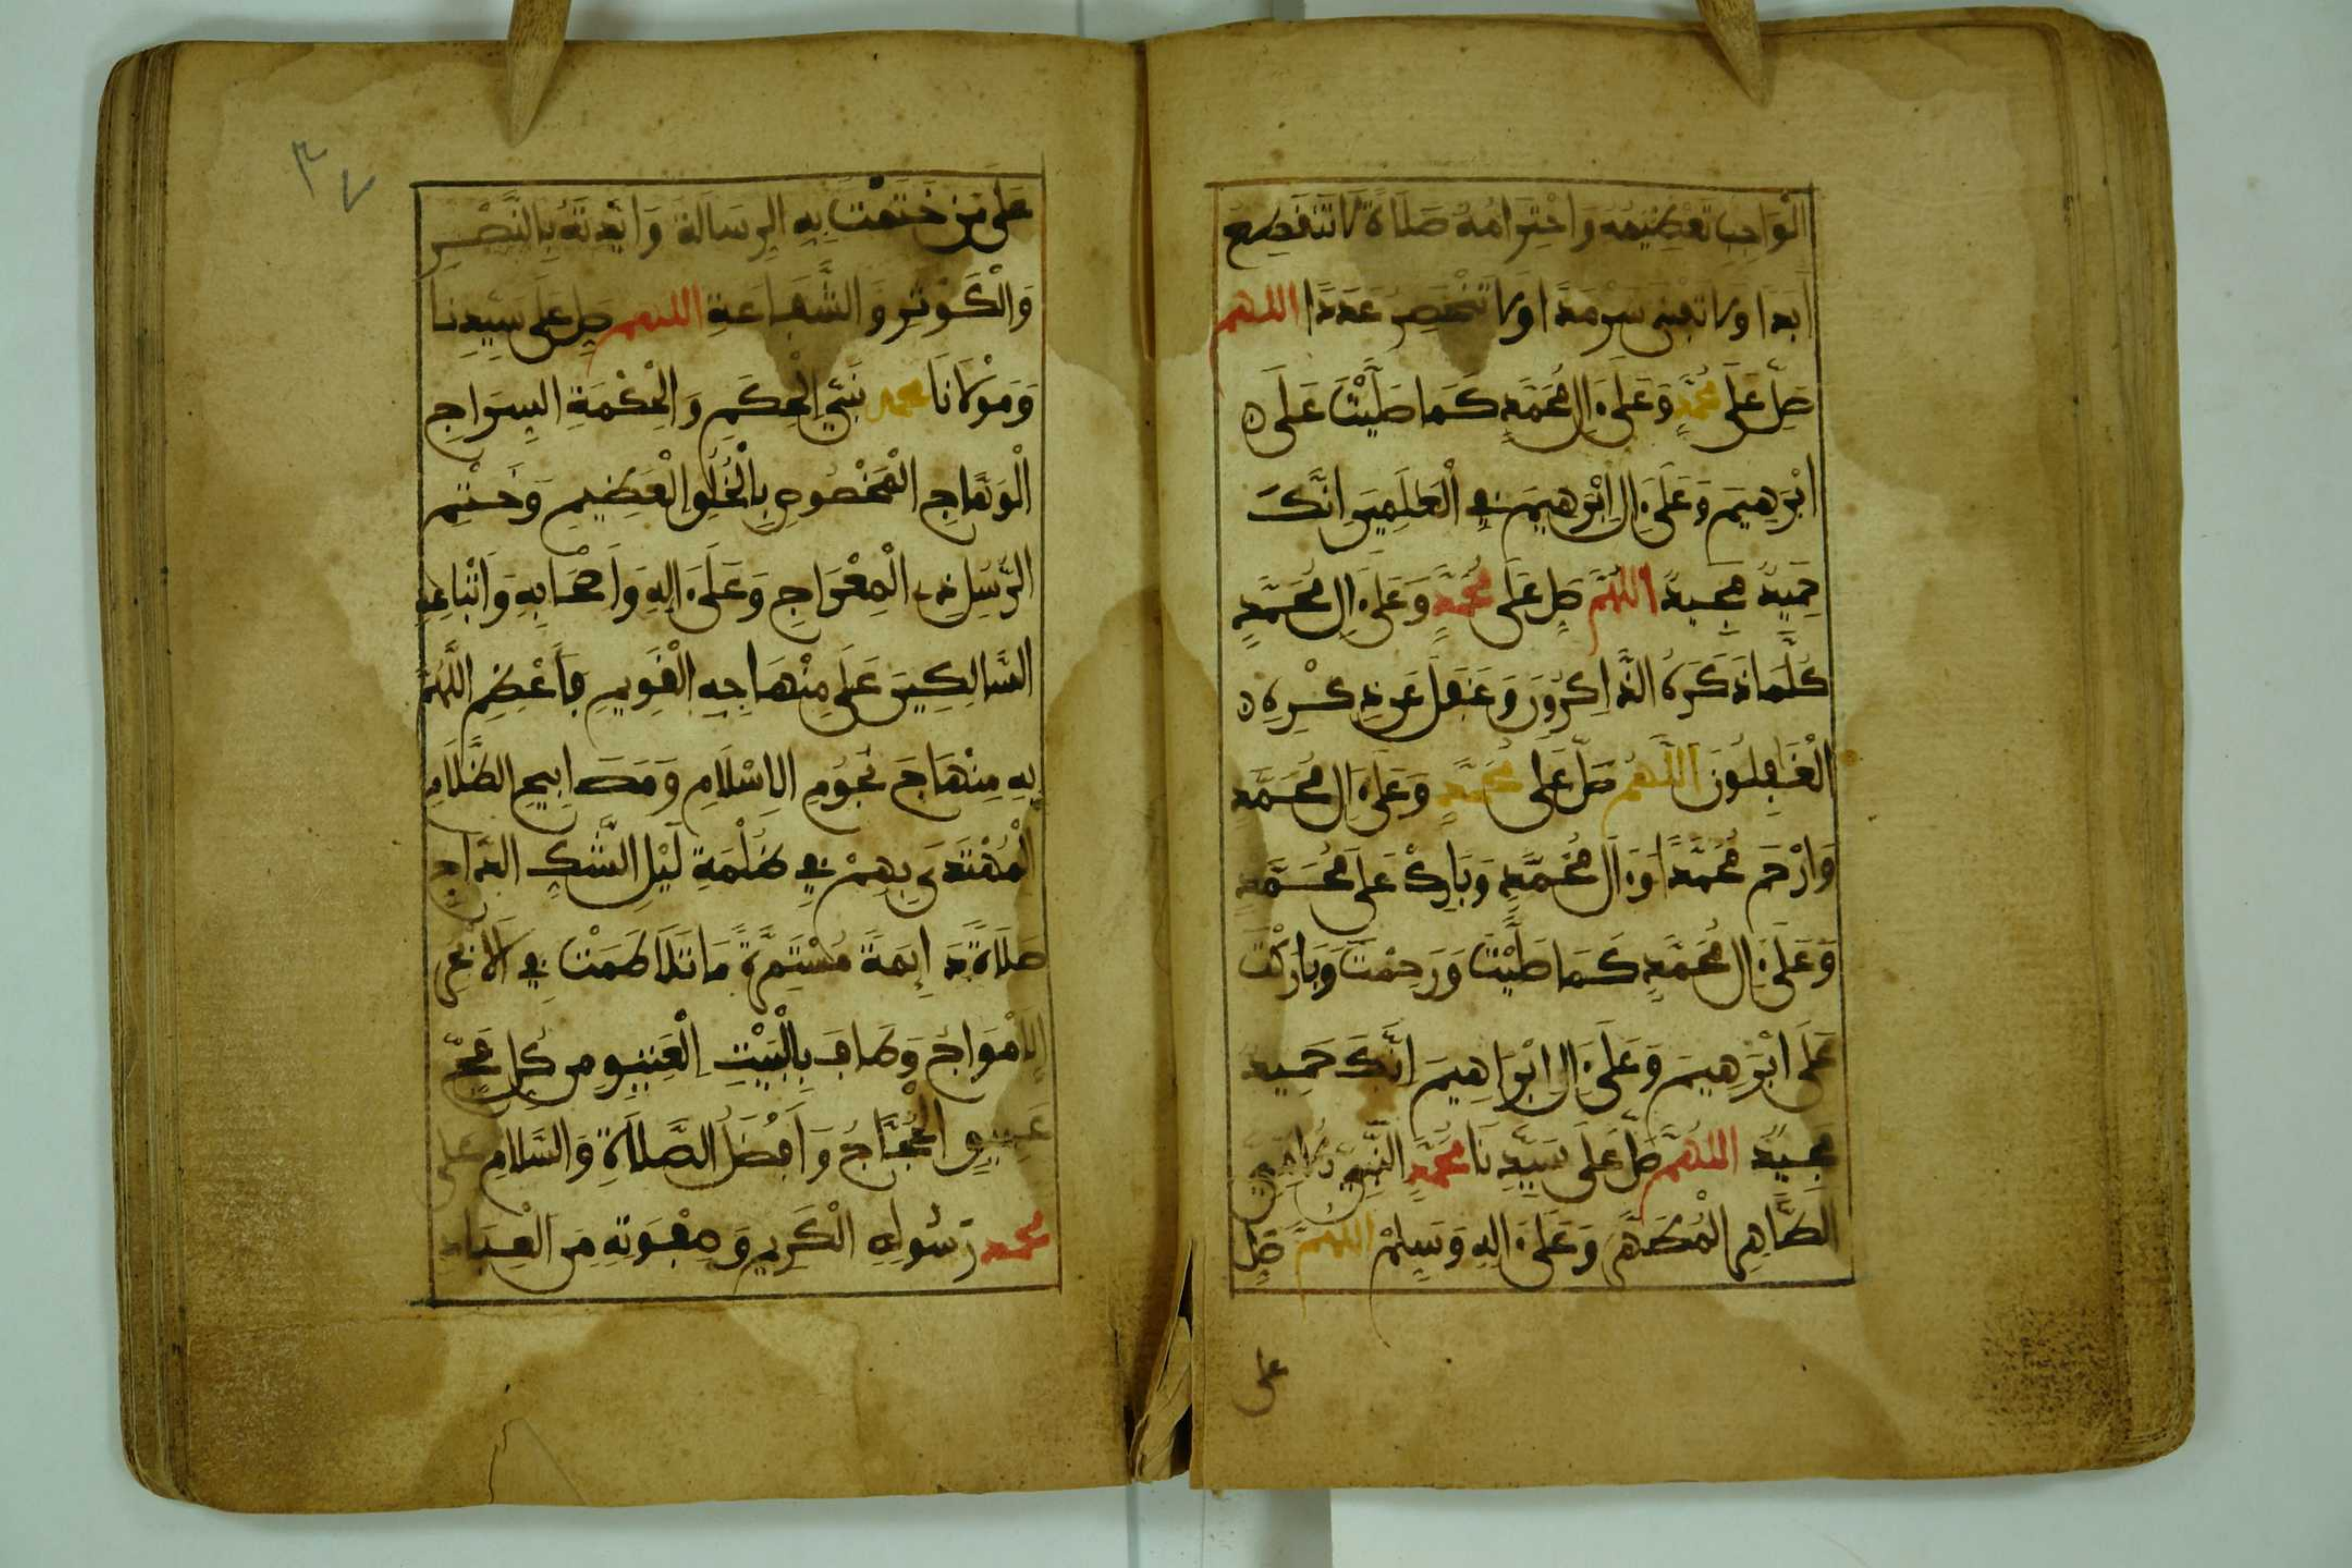 الْوَاجِبِ تَعْظِيمُهُ وَاحْتِرَامُهُ صَلَاةً لَا تَنْقَطِعُ
أَبَدًا وَلَا تَفْنَى سَرْمَدًا وَلَا تَنْحَصِرُ عَدَدًا اللهم
صَلِّ عَلَى مُحَمَّدٍ وَعَلَىٰ ءَالِ مُحَمَّدٍ كَمَا صَلَّيْتَ عَلَى
ابْرَهِيمَ وَعَلَىٰ ءَالِ ابْرَهِيمَ فِي الْعَلَمِينَ انَّكَ
حَمِيدٌ مَجِيدٌ اللَّهُمَّ صَلِّ عَلَى مُحَمَّدٍ وَعَلَىٰ ءَالِ مُحَمَّدٍ
كُلَّمَا ذَكَرَهُ الذَّاكِرُونَ وَغَفَلَ عَن ذِكْرِهِ
الْغَافِلُونَ اللَّهُمَّ صَلِّ عَلَى مُحَمَّدٍ وَعَلَىٰ ءَالِ مُحَمَّدٍ
وَارْحَمْ مُحَمَّدًا وَءَالَ مُحَمَّدٍ وَبَارِكْ عَلَى مُحَمَّدٍ
وَعَلَىٰ ءَالِ مُحَمَّدٍ كَمَا صَلَّيْتَ وَرَحِمْتَ وَبَارَكْتَ
عَلَى ابْرَهِيمَ وَعَلَىٰ ءَالِ ابْرَاهِيمَ انَّكَ حَمِيدٌ
مَجِيدٌ اللهُمَّ صَلِّ عَلَى سَيِّدِنَا مُحَمَّدٍ النَّبِيِّ الأُمِّيِّ
الطَّاهِرِ الْمُطَهَّرِ وَعَلَىٰ ءَالِهِ وَسَلِّمْ اللهُمَّ صَلِّ
على
٣٧
عَلَى مَنْ خَتَمْتَ بِهِ الرِّسَالَةَ وَايَّدتَّهُ بِالنَّصْرِ
وَالْكَوْثَرِ وَالشَّفَاعَةِ اللهم صَلِّ عَلَى سَيِّدِنَا
وَمَوْلَانَا محمد نَبِيِّ الْحُكْمِ وَالْحِكْمَةِ السِّرَاجِ
الْوَهَّاجِ الْمَخْصُوصِ بِالْخُلُقِ الْعَظِيمِ وَخَتْمِ
الرُّسْلِ ذِي الْمِعْرَاجِ وَعَلَىٰ ءَالِهِ وَأَصْحَابِهِ وَأَتْبَاعِهِ
السَّالِكِينَ عَلَى مِنْهَاجِهِ الْقَوِيمِ فَأَعْظِمِ اللَّهُمَّ
بِهِ مِنْهَاجَ نُجُومِ الِاسْلَامِ وَمَصَابِيحِ الظَّلَامِ
الْمُهْتَدَى بِهِمْ فِي ظُلْمَةِ لَيْلِ الشَّكِّ الدَّاجِ
صَلَاةً دَائِمَةً مُسْتَمِرَّةً مَا تَلَاطَمَتْ فِي الابْحُرِ
الامْوَاجُ وَطَافَ بِالْبَيْتِ الْعَتِيقِ مِن كُلِّ فَجٍّ
عَمِيقٍ الْحُجَّاجُ وَأَفْضَلُ الصَّلَاةِ وَالسَّلَامِ على
محمد رَسُولِهِ الْكَرِيمِ وَصِفْوَتِهِ مِنَ الْعِبَادِ